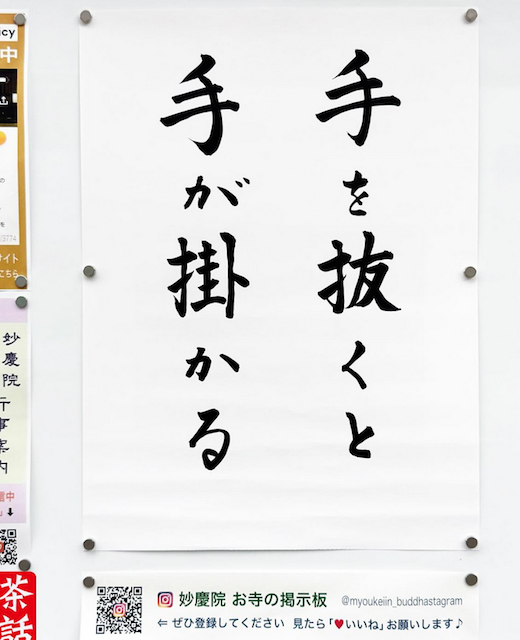 手を抜くと
手が掛かる
妙慶院 お寺の掲示板 @myoukeiin_buddhastagram
⇐ ぜひ登録してください 見たら「♥いいね」お願いします♪
中
サイト
こちら
妙慶院
行事案内
中
茶話